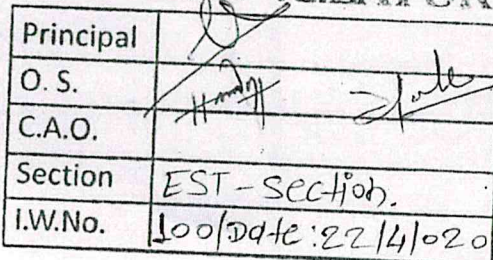 Principal
O. S.
C.A.O.
Section EST-Section.
I.W.No. 100/Date:22/4/020